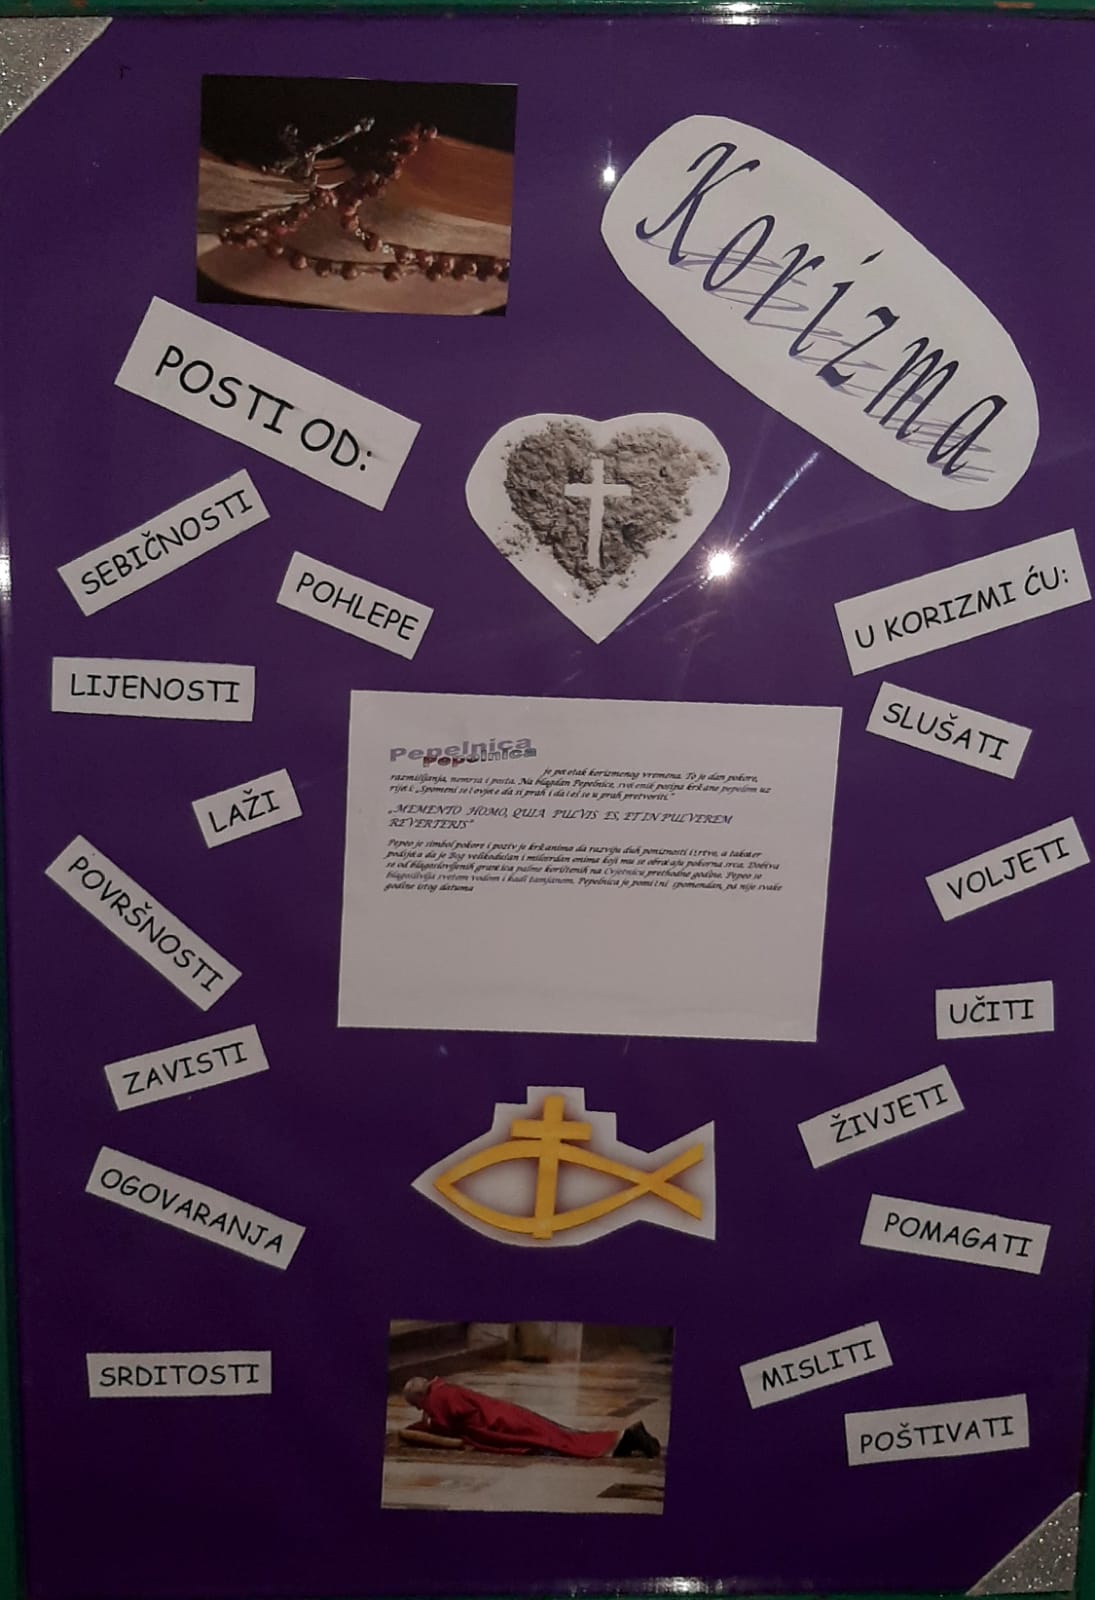 Korizma
POSTI OD:
SEBIČNOSTI
POHLEPE
LIJENOSTI
LAŽI
POVRŠNOSTI
ZAVISTI
OGOVARANJA
SRDITOSTI
Pepelnica
je po etak korizmenog vremena. To je dan pokore,
razmišljanja, nemrsa i posta. Na blagdan Pepelnice, sve enik posipa krš ane pepelom uz
rije i: „Spomeni se ovje e da si prah i da eš se u prah pretvoriti.“
„MEMENTO HOMO, QUIA PULVIS ES, ET IN PULVEREM
REVERTERIS“
Pepeo je simbol pokore i poziv je krš anima da razviju duh poniznosti i žrtve, a tako er
podsje a da je Bog velikodušan i milosrdan onima koji mu se obra aju pokorna srca. Dobiva
se od blagoslovljenih gran ica palme korištenih na Cvjetnicu prethodne godine. Pepeo se
blagoslivlja svetom vodom i kadi tamjanom. Pepelnica je pomi ni spomendan, pa nije svake
godine istog datuma
U KORIZMI ĆU:
SLUŠATI
VOLJETI
UČITI
ŽIVJETI
POMAGATI
MISLITI
POŠTIVATI